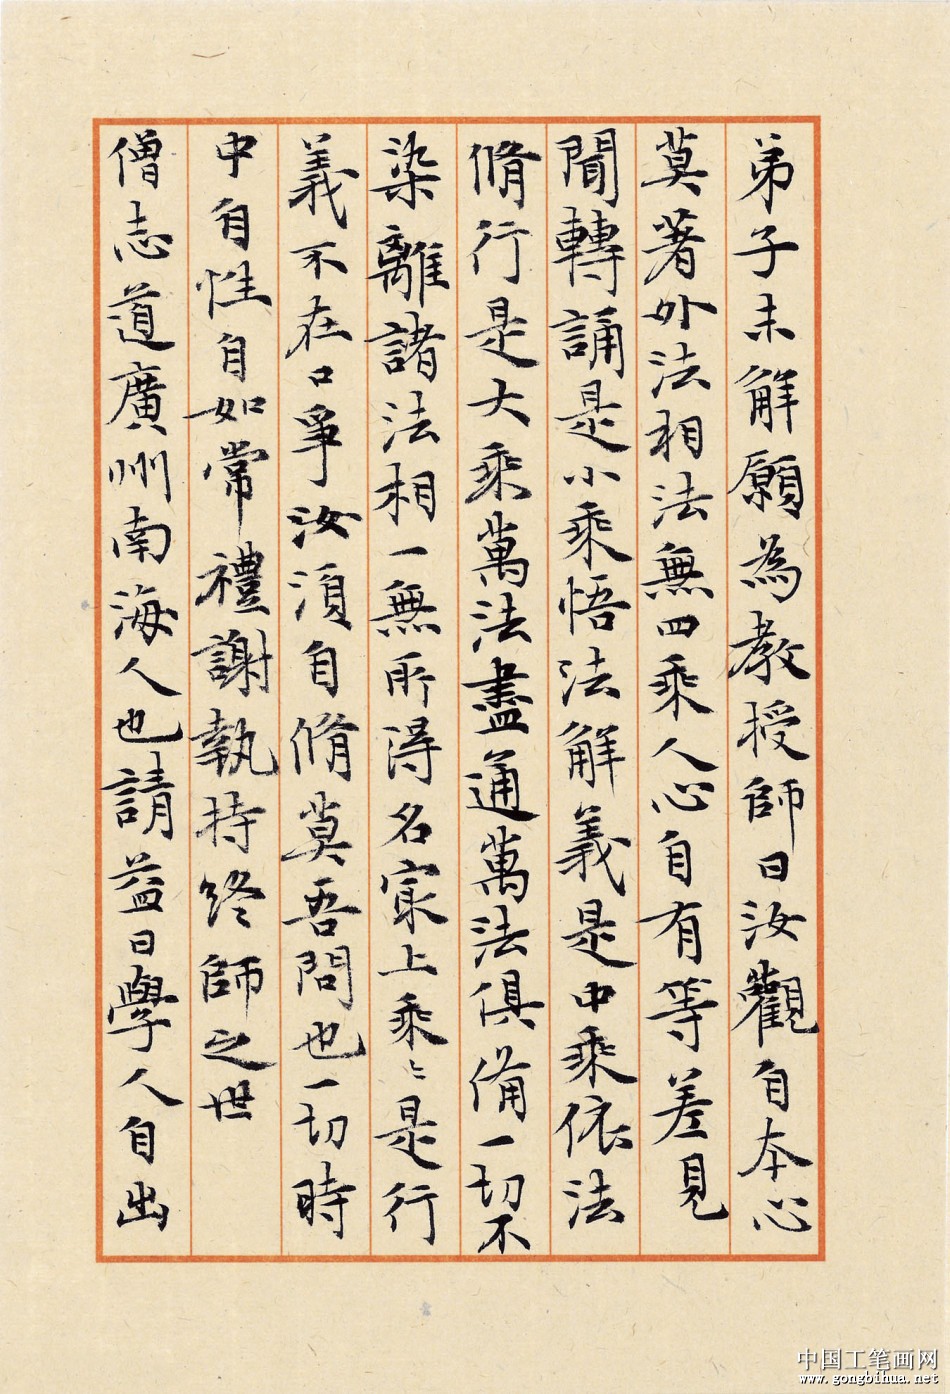 弟子未解願為教授師曰汝觀自本心
莫著外法相法無四乘人心自有等差見
聞轉誦是小乘悟法解義是中乘依法
脩行是大乘萬法盡通萬法俱備一切不
染離諸法相一無所得名寂上乘〻是行
義不在口爭汝須自脩莫吾問也一切時
中自性自如常禮謝執持終師之世
僧志道廣州南海人也請益曰學人自出
中国工笔画网
www.gongbihua.net